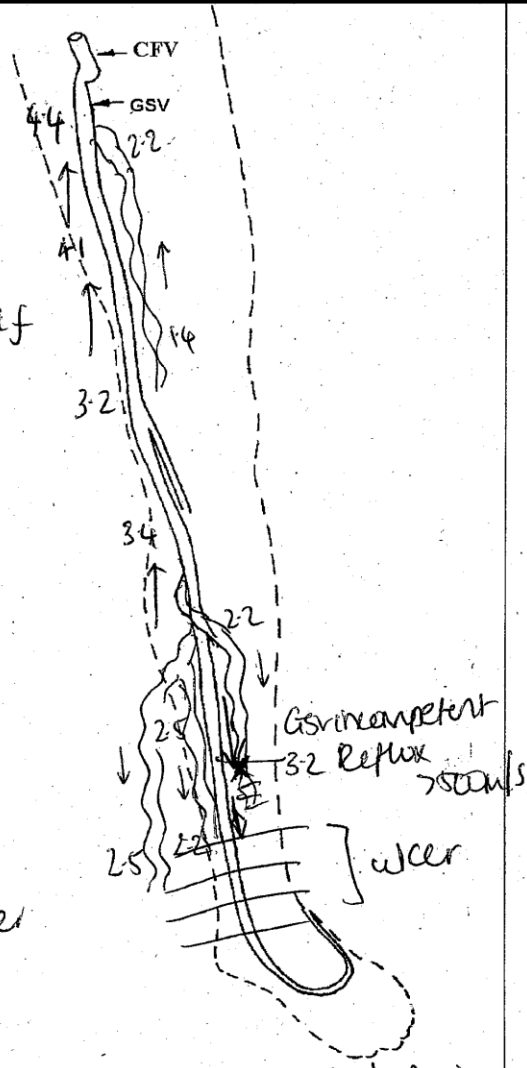 CFV
GSV
4.4
2.2
4.1
1.4
3.2
3.4
2.2
GSV incompetent
2.5
3.2 Reflux
>500m/s
2.2
2.5
ulcer